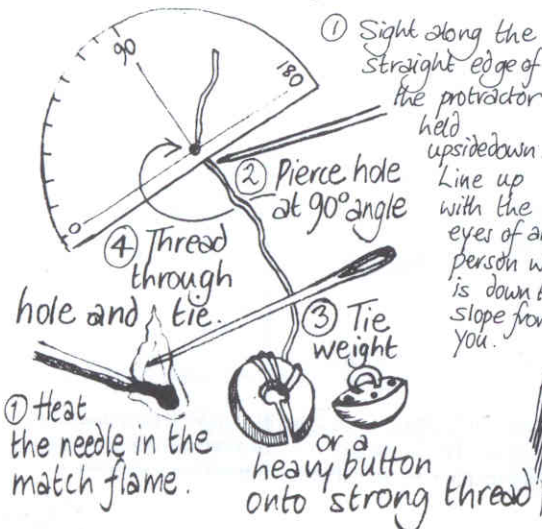 90
180
0
① Sight along the
straight edge of
the protractor
held
upsidedown.
Line up
with the
eyes of
person
is down
slope from
you.
② Pierce hole
at 90° angle
④ Thread
through
hole and tie.
③ Tie
weight
① Heat
the needle in the
match flame.
or a
heavy button
onto strong thread